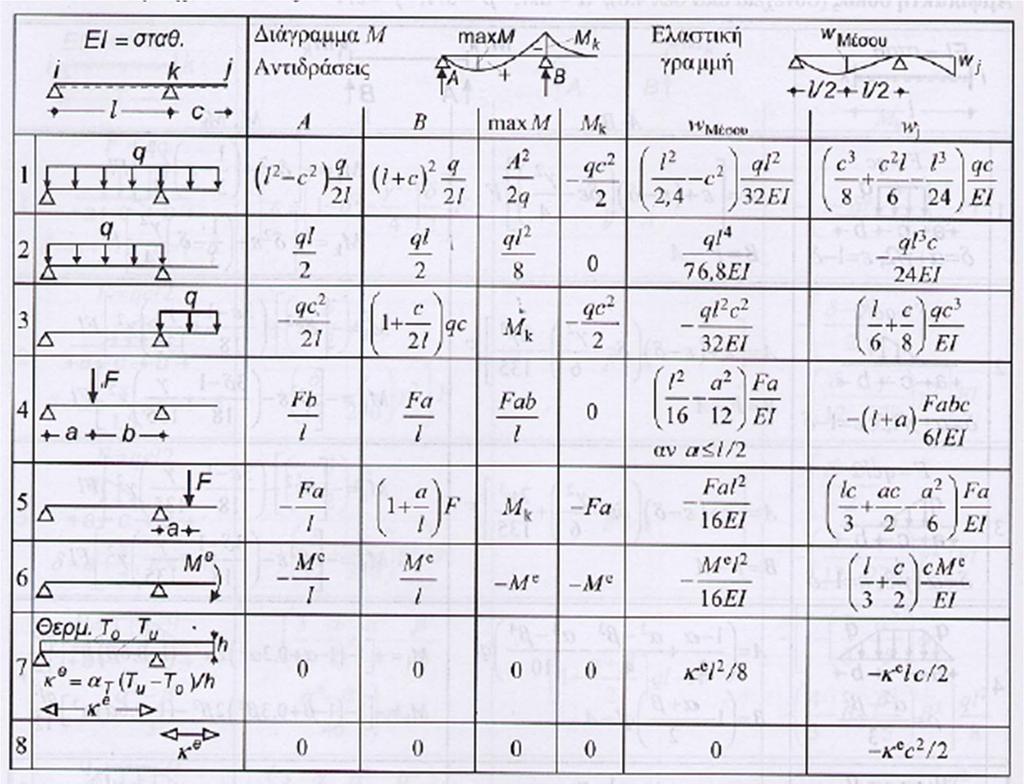 EI = σταθ.
i k j
l c
Διάγραμμα M
Αντιδράσεις
maxM
M_k
A + B
Ελαστική
γραμμή
w_Μέσου
w_j
l/2 l/2
A B max M M_k w_Μέσου w_j
1 q (l²−c²) q/2l (l+c)² q/2l A²/2q −qc²/2 (l²/2,4 −c²) ql²/32EI (c³/8 + c²l/6 − l³/24) qc/EI
2 q ql/2 ql/2 ql²/8 0 ql⁴/76,8EI −ql³c/24EI
3 q −qc²/2l (1+c/2l) qc M_k −qc²/2 −ql²c²/32EI (l/6 + c/8) qc³/EI
4 F a b Fb/l Fa/l Fab/l 0 (l²/16 − a²/12) Fa/EI −(l+a) Fabc/6lEI
αν a≤l/2
5 F a −Fa/l (1+a/l) F M_k −Fa −Fal²/16EI (lc/3 + ac/2 − a²/6) Fa/EI
6 Mᵉ −Mᵉ/l Mᵉ/l −Mᵉ −Mᵉ −Mᵉl²/16EI (l/3 + c/2) cMᵉ/EI
7 Θερμ. T_o T_u h 0 0 0 0 κᵉl²/8 −κᵉlc/2
κᵉ = α_T (T_u −T_o)/h
κᵉ
8 κᵉ 0 0 0 0 0 −κᵉc²/2